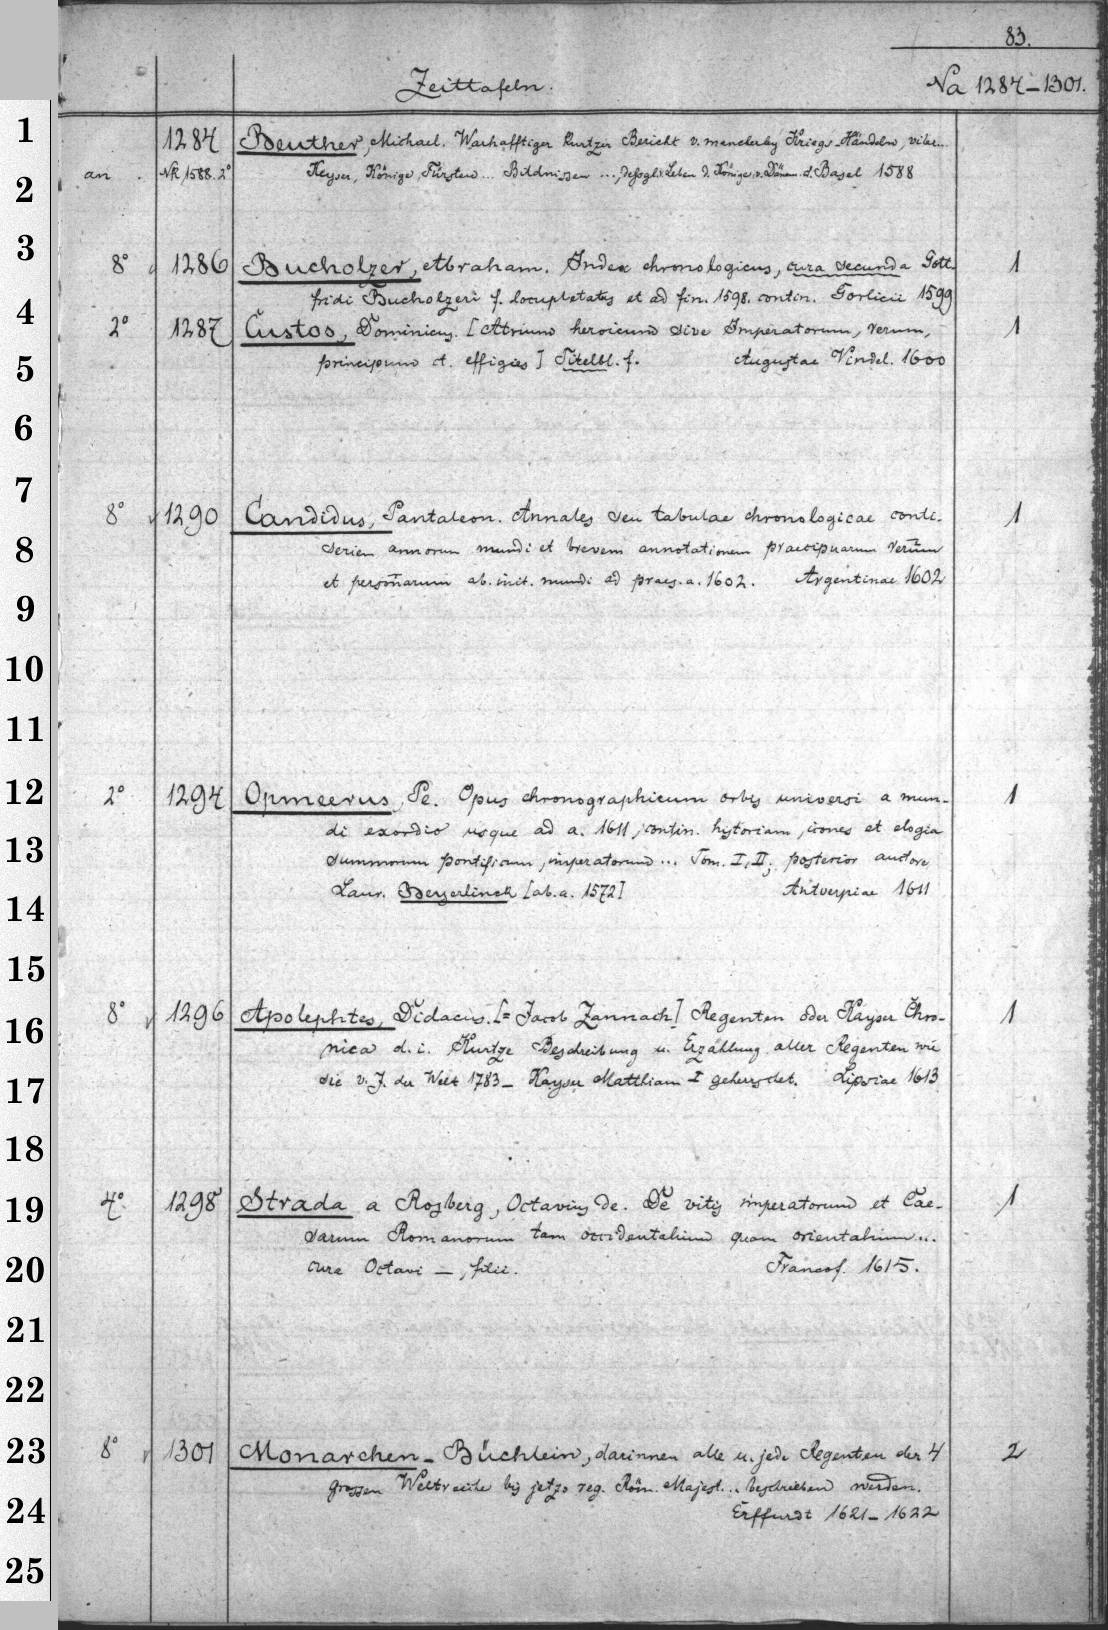 83.
Zeittafeln. Na 1284-1301.
1
1284 Beuther, Michael. Warhafftiger kurtzer Bericht v. mancherley Kriegs-Händeln, viler...
2
an Nk 1588. 2° Keyser, Könige, Fürsten ... Bildnissen ..., Leben d. Könige v. Dänem. d. Basel 1588
3
8° 1286 Bucholzer, Abraham. Index chronologicus, cura secunda Gott-
4
fridi Bucholzeri f. locupletatus et ad fin. 1598. contin. Gorlicii 1599
2° 1287 Custos, Dominicus. [Atrium heroicum sive Imperatorum, rerum, 1
5
principum et. effigies] Titelbl. f. Augustae Vindel. 1600
6
7
8° 1290 Candidus, Pantaleon. Annales seu tabulae chronologicae conti. 1
8
seriem annorum mundi et brevem annotationem praecipuarum rerum
et personarum ab. init. mundi ad praes. a. 1602. Argentinae 1602
9
10
11
12
2° 1294 Opmeerus, Pe. Opus chronographicum orbis universi a mun- 1
di exordio usque ad a. 1611, contin. historiam, icones et elogia
13
summorum pontificum, imperatorum ... Tom. I, II; posterior auctore
14
Laur. Beyerlinck [ab. a. 1572] Antverpiae 1611
15
8° 1296 Apolephtes, Didacus. [= Jacob Zannach] Regenten oder Kayser Chro- 1
16
nica d. i. Kurtze Beschreibung u. Erzählung aller Regenten wie
17
sie v. J. der Welt 1783 - Kayser Matthiam I geherrschet. Lipsiae 1613
18
19
4° 1298 Strada a Rosberg, Octavius de. De vitis imperatorum et Cae- 1
sarum Romanorum tam occidentalium quam orientalium...
20
cura Octavi —, filii. Francof. 1615.
21
22
23
8° 1301 Monarchen-Büchlein, darinnen alle u. jede Regenten der 4 2
grossen Weltreiche bis jetzo reg. Röm. Majest... beschrieben werden.
24
Erffurdt 1621-1622
25